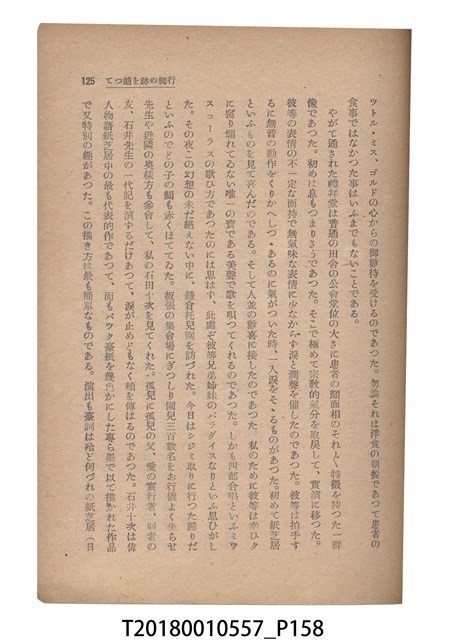 125　行脚の跡を顧つて
ツトル・ミス、ゴルドの心からの御歓待を受けるのであつた。勿論それは洋食の朝餐であつて患者の
食事ではなかつた事はいふまでもないことである。
やがて通された禮拜堂は普通の田舎の公會堂位の大さに患者の顔面相のそれ〴〵特徴を持つた一群
像であつた。初めは息もつまりさうであつた。そこで極めて宗教的氣分を取戻して、實演に移つた。
彼等の表情の不一定な面持で無氣味な表情に少なからず涙と潤聲を催したのであつた。彼等は拍手す
るに無音の動作をくりかへしつゝあるのに氣がついた時、一入涙をそゝるものがあつた。初めて紙芝居
といふものを見て喜んだのである。そして人並の歡喜に接したのであつた。私のために彼等は幸ひク
に腐り爛れてゐない唯一の寶である美聲で歌を唄つてくれるのであつた。しかも四部合唱といふミツ
スコーラスの歌ひ方であつたのには思はず、此處ぞ彼等兄弟姉妹のパラダイスなりといふ思ひがし
た。その夜この幻想の未だ絶えない中に、鎌倉托兒園を訪づれた。今日はシジミ取りに行つた歸りだ
といふのでどの子の顔も赤くほてゝゐた。板張の集會場にぎつしり園兒三百數名をお行儀よく坐らせ
先生や近隣の奥様方も參會して、私の石田十次を見てくれた。孤兒に孤兒の父、愛の實行者、弱者の
友、石井先生の一代記を演ずるだけあつて、涙が止めどもなく頬を傳はるのであつた。石井十次は偉
人物語紙芝居中の最も代表的作であつて、而もバツク臺紙を幾色かにした專ら墨で以て描かれた作品
で又特別の趣があつた。この描き方は最も簡單なものである。演出も臺詞は殆ど何づれの紙芝居（日
T20180010557_P158